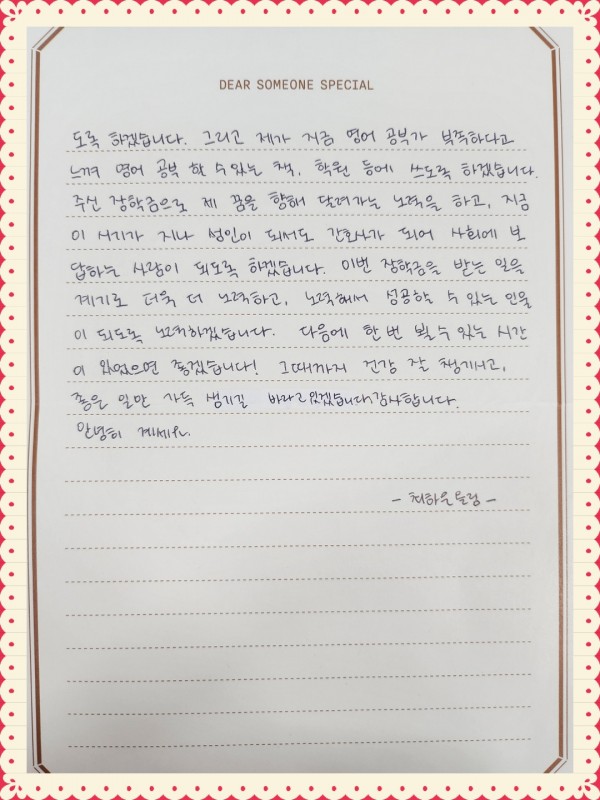 DEAR SOMEONE SPECIAL
도록 하겠습니다. 그리고 제가 지금 영어 공부가 부족하다고
느껴 영어 공부 할 수 있는 책, 학원 등에 쓰도록 하겠습니다.
주신 장학금으로 제 꿈을 향해 달려가는 노력을 하고, 지금
이 시기가 지나 성인이 되서도 간호사가 되어 사회에 보
답하는 사람이 되도록 하겠습니다. 이번 장학금을 받는 일을
계기로 더욱 더 노력하고, 노력해서 성공할 수 있는 인물
이 되도록 노력하겠습니다. 다음에 한번 뵐 수 있는 시간
이 있었으면 좋겠습니다! 그때까지 건강 잘 챙기시고,
좋은 일만 가득 생기길 바라고 있겠습니다. 감사합니다.
안녕히 계세요.
- 올림 -